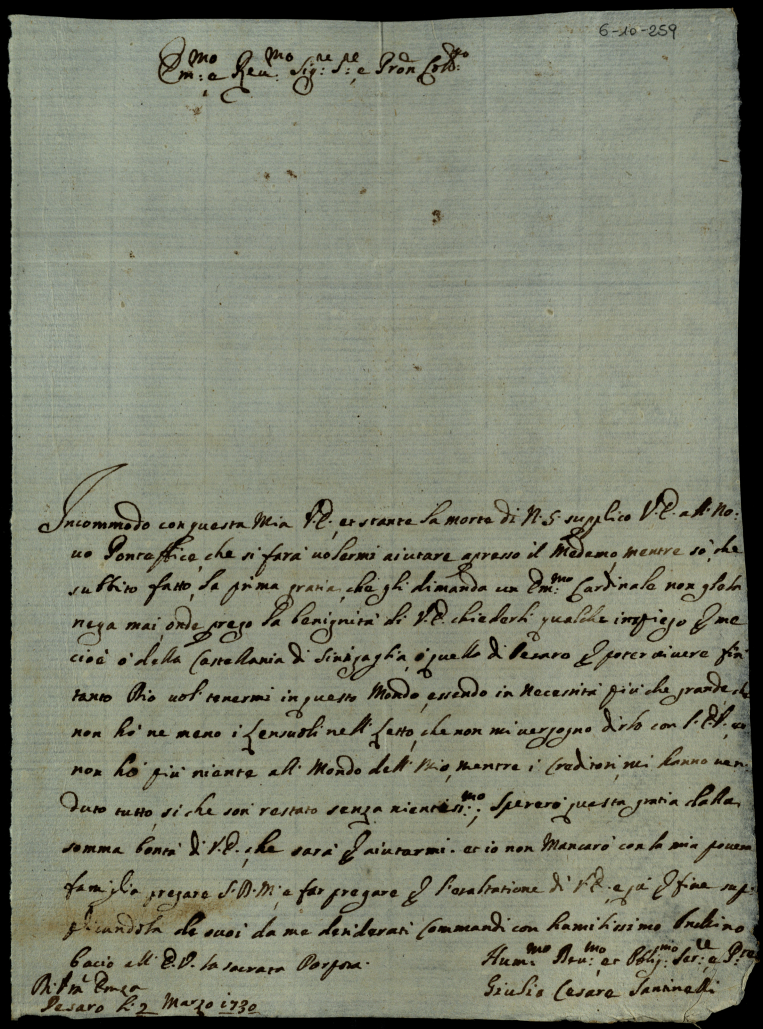 6-10-259
Em:mo e Reu:mo Sig:re S:re e Pron Col:mo
Incommodo con questa Mia V.E., et stante la morte di N.S. supplico V.E. all No:
uo Pontefice, che si farà uolermi aiutare apresso il Medemo, mentre sò, che
subbito fatto, la prima gratia, che gli dimanda un Em:mo Cardinale non gliela
nega mai, onde prego la benignità di V.E. chiederli qualche impiego per me
cioè ò della Castellania di Sinigaglia, ò quello di Pesaro per poter uiuere fin
tanto Dio uol tenermi in questo Mondo, essendo in necessità più che grande, che
non hò ne meno i Lensuoli nell Letto, che non mi uergogno dirlo con V.E.,
non hò più niente all Mondo dell Mio, mentre i Creditori, mi hanno uen
duto tutto, si che son restato senza nientesi:mo; Sperero questa gratia dalla
somma bontà di V.E., che sarà per aiutarmi. et io non Mancarò con la mia pouera
famiglia pregare S.D.M. e far pregare per l'esaltatione di V.E. e qui per fine sup
plicandola de suoi da me desiderati Commandi con humilissimo Inchino
bacio all E.V. la sacrata Porpora.
Di V'ra Emza
Pesaro li 2 Marzo 1730
Hum:mo Deu:mo et Oblig:mo Ser:re e
Giulio Cesare Santinelli